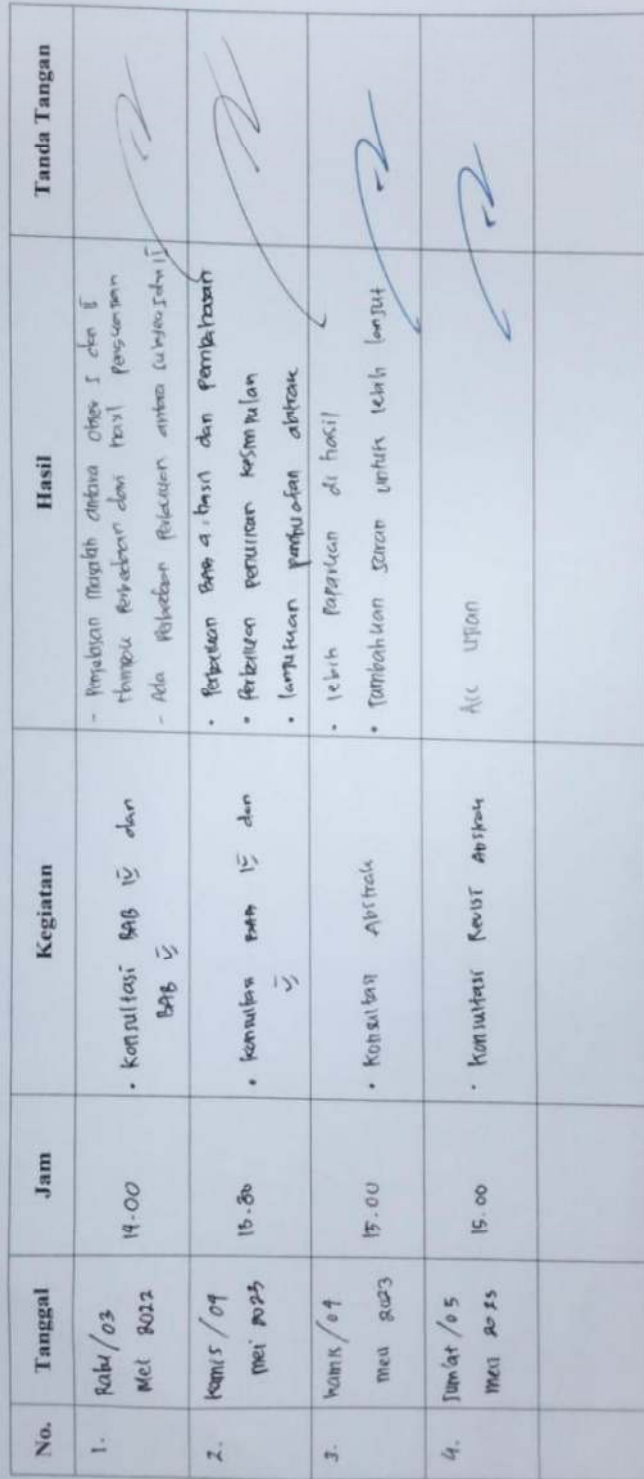 No. Tanggal Jam Kegiatan Hasil Tanda Tangan
1. Rabu/03
Mei 2022
14.00
• Konsultasi BAB IV dan
BAB V
- Penjelasan Masalah antara obser I dan II
Perbedaan dari hasil
- Ada Perbedaan antara subyek I dan II
2. Kamis/04
Mei 2023
13.30
• Konsultasi BAB IV dan
V
• Perbaikan BAB 4: hasil dan Pembahasan
• Perbaikan penulisan kesimpulan
• lanjutkan pembuatan abstrak
3. Kamis/04
Mei 2023
15.00
• Konsultasi Abstrak
• lebih paparkan di hasil
• Tambahkan saran untuk lebih lanjut
4. Jum'at/05
Mei 2023
15.00
• Konsultasi Revisi Abstrak
Acc Ujian